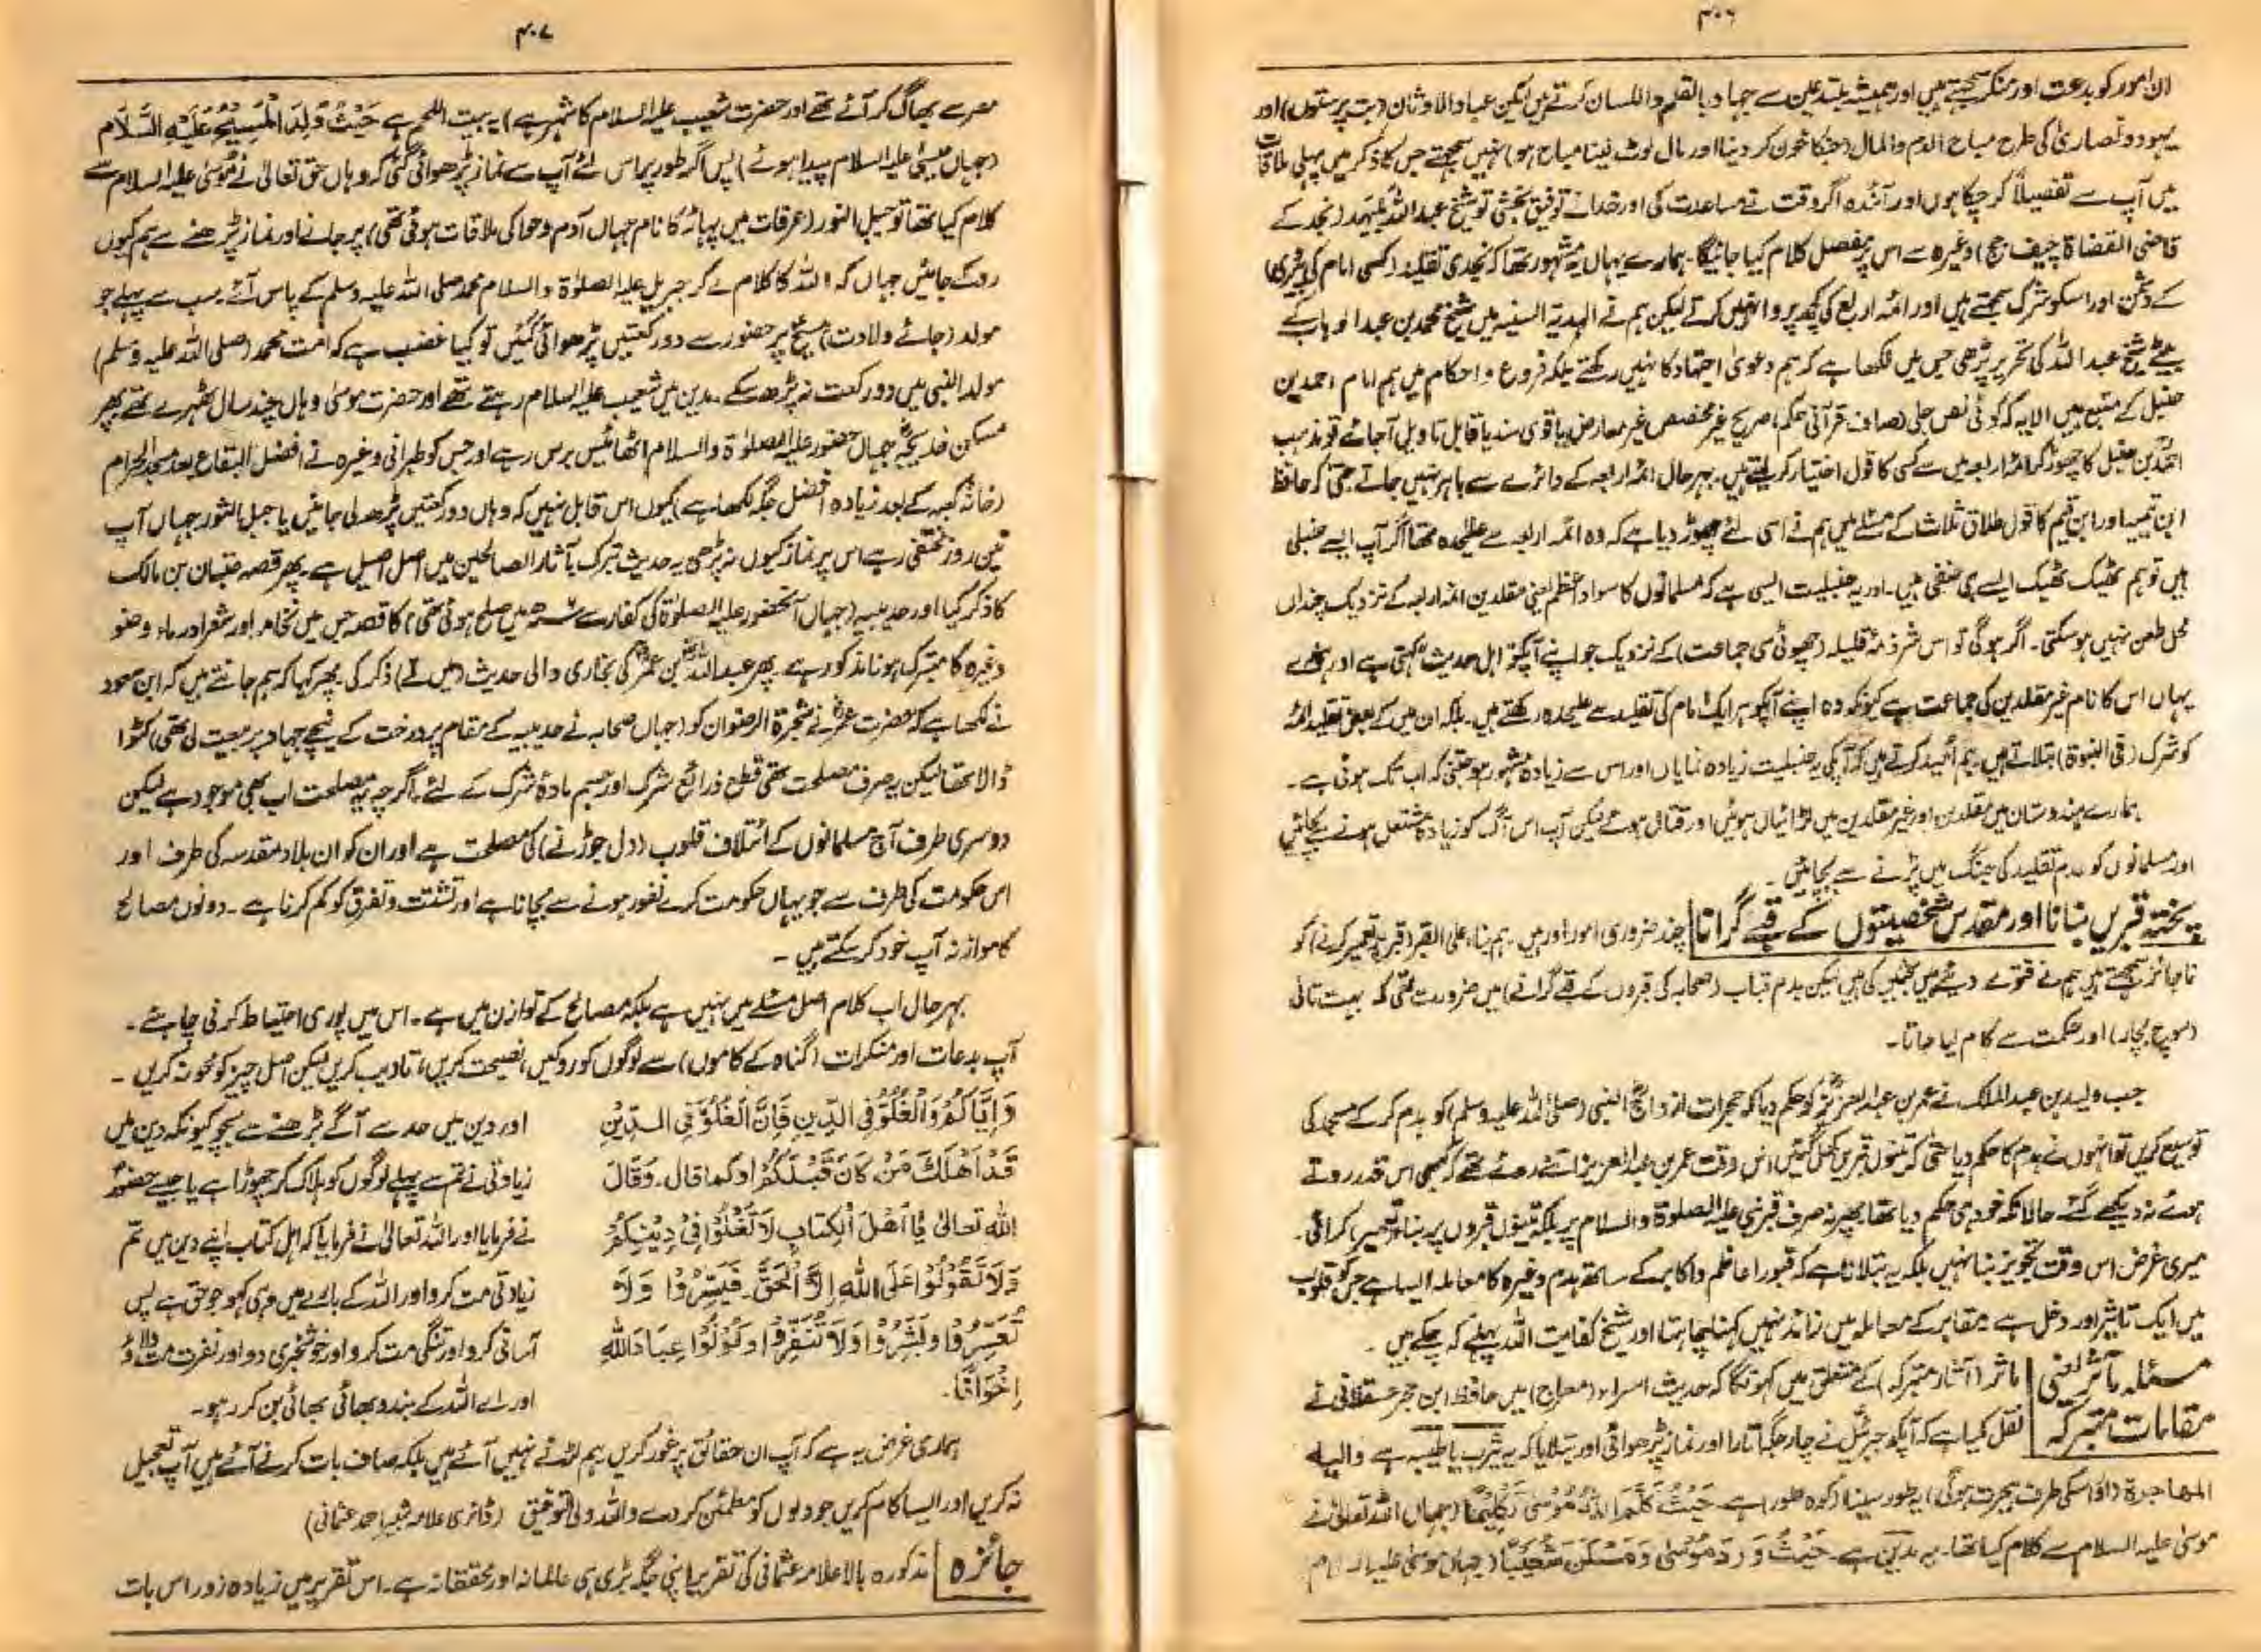 ۴۰۶
ان امور کو بدعت اور منکر سمجھتے ہیں اور ہمیشہ مبتدعین سے جہاد بالقلم واللسان کرتے ہیں لیکن عباد الاوثان (بت پرستوں) اور
یہود و نصاریٰ کی طرح مباح الدم والمال (جنکا خون کر دینا اور مال لوٹ لینا مباح ہو) نہیں سمجھتے جس کا ذکر میں پہلی ملاقات
میں آپ سے تفصیلاً کر چکا ہوں اور آئندہ اگر وقت نے مساعدت کی اور خدا نے توفیق بخشی تو شیخ عبداللہ بلیہد (نجد کے
قاضی القضاۃ چیف جج) وغیرہ سے اس پر مفصل کلام کیا جائیگا۔ ہمارے یہاں یہ مشہور تھا کہ نجدی تقلید (کسی امام کی پیروی)
کے دشمن اور اسکو شرک سمجھتے ہیں اور ائمہ اربع کی کچھ پروا نہیں کرتے لیکن ہم نے الہدیۃ السنیہ میں شیخ محمد بن عبدالوہاب کے
بیٹے شیخ عبداللہ کی تحریر پڑھی جس میں لکھا ہے کہ ہم دعویٰ اجتہاد کا نہیں رکھتے بلکہ فروع و احکام میں ہم امام احمد بن
حنبل کے متبع ہیں الا یہ کہ کوئی نص جلی (صاف قرآنی حکم) صریح غیر مخصص غیر معارض یا قوی سند یا قابل تاویل آجائے تو مذہب
احمد بن حنبل کا چھوڑ کر ائمہ اربعہ میں سے کسی کا قول اختیار کر لیتے ہیں۔ بہر حال ائمہ اربعہ کے دائرے سے باہر نہیں جاتے حتیٰ کہ حافظ
ابن تیمیہ اور ابن قیم کا قول طلاق ثلاث کے مسئلے میں ہم نے اسی لئے چھوڑ دیا ہے کہ وہ ائمہ اربعہ سے علیحدہ تھا اگر آپ ایسے حنبلی
ہیں تو ہم ٹھیک ٹھیک ایسے ہی حنفی ہیں۔ اور یہ حنبلیت ایسی ہے کہ مسلمانوں کا سواد اعظم یعنی مقلدین ائمہ اربعہ کے نزدیک چنداں
محل طعن نہیں ہو سکتی۔ اگر ہوگی تو اس شرذمۂ قلیلہ (چھوٹی سی جماعت) کے نزدیک جو اپنے آپکو اہل حدیث کہتی ہے اور ہمارے
یہاں اس کا نام غیر مقلدین کی جماعت ہے کیونکہ وہ اپنے آپکو ہر ایک امام کی تقلید سے علیحدہ رکھتے ہیں۔ بلکہ ان میں کے بعض تقلید ائمہ
کو شرک (فی النبوۃ) بتلاتے ہیں۔ ہم امید کرتے ہیں کہ آپکی یہ حنبلیت زیادہ نمایاں اور اس سے زیادہ مشہور ہو جتنی کہ اب تک ہوئی ہے۔
ہمارے ہندوستان میں مقلدین اور غیر مقلدین میں لڑائیاں ہوئیں اور قتال ہوئے لیکن آپ اس آگ کو زیادہ مشتعل ہونے سے بچائیں
اور مسلمانوں کو عدم تقلید کی جنگ میں پڑنے سے بچائیں۔
پختہ قبریں بنانا اور مقدس شخصیتوں کے قبے گرانا چند ضروری امور اور ہیں۔ ہم بناء علی القبر (قبر پر تعمیر کرنے) کو
ناجائز سمجھتے ہیں ہم نے فتوے دیئے ہیں بحثیں کی ہیں لیکن ہدم قباب (صحابہ کی قبروں کے قبے گرانے) میں ضرورت تھی کہ بہت تانی
(سوچ بچار) اور حکمت سے کام لیا جاتا۔
جب ولید بن عبدالملک نے عمر بن عبدالعزیز کو حکم دیا کہ حجرات ازواج النبی (صلی اللہ علیہ وسلم) کو ہدم کر کے مسجد کی
توسیع کریں تو انہوں نے ہدم کا حکم دیا حتیٰ کہ تینوں قبریں کھل گئیں اس وقت عمر بن عبدالعزیز اتنے روئے تھے کہ کبھی اس قدر روتے
ہوئے نہ دیکھے گئے۔ حالانکہ خود ہی حکم دیا تھا۔ پھر نہ صرف قبر نبی علیہ الصلوۃ والسلام پر بلکہ تینوں قبروں پر بناء (تعمیر) کرائی۔
میری غرض اس وقت تجویز بنا نہیں بلکہ یہ بتلانا ہے کہ قبور اعاظم و اکابر کے ساتھ ہدم وغیرہ کا معاملہ ایسا ہے جس کو قلوب
میں ایک تاثیر اور دخل ہے۔ مقابر کے معاملہ میں زائد نہیں کہنا چاہتا اور شیخ کفایت اللہ پہلے کہہ چکے ہیں۔
مسئلہ مآثر یعنی مآثر (آثار متبرکہ) کے متعلق میں کہونگا کہ حدیث اسراء (معراج) میں حافظ ابن حجر عسقلانی نے
مقامات متبرکہ نقل کیا ہے کہ آپکو جبرئیل نے چار جگہ اتارا اور نماز پڑھوائی اور بتلایا کہ یہ یثرب یا طیبہ ہے والیہ
المهاجرة (اور اسکی طرف ہجرت ہوگی) یہ طور سینا (کوہ طور) ہے۔ حَیْثُ کَلَّمَ اللّٰہُ مُوْسٰی تَکْلِیْمًا (جہاں اللہ تعالیٰ نے
موسیٰ علیہ السلام سے کلام کیا تھا۔ یہ مدین ہے۔ حَیْثُ وَرَدَ مُوْسٰی وَمَسْکَنَ شُعَیْبًا (جہاں موسیٰ علیہ السلام
۴۰۷
مصر سے بھاگ کر آئے تھے اور حضرت شعیب علیہ السلام کا شہر ہے) یہ بیت اللحم ہے حَیْثُ وُلِدَ الْمَسِیْحُ عَلَیْہِ السَّلَام
(جہاں عیسیٰ علیہ السلام پیدا ہوئے) پس اگر طور پر اس لئے آپ سے نماز پڑھوائی گئی کہ وہاں حق تعالیٰ نے موسیٰ علیہ السلام سے
کلام کیا تھا تو جبل النور (عرفات میں پہاڑ کا نام جہاں آدم و حوا کی ملاقات ہوئی تھی) پر جانے اور نماز پڑھنے سے ہم کیوں
روکے جائیں جہاں کہ اللہ کا کلام لے کر جبریل علیہ الصلوٰۃ والسلام محمد صلی اللہ علیہ وسلم کے پاس آئے۔ سب سے پہلے جو
مولد (جائے ولادت) مسیح پر حضور سے دو رکعتیں پڑھوائی گئیں تو کیا غضب ہے کہ امت محمد (صلی اللہ علیہ وسلم)
مولد النبی میں دو رکعت نہ پڑھ سکے۔ مدین میں شعیب علیہ السلام رہتے تھے اور حضرت موسیٰ وہاں چند سال ٹھہرے تھے پھر
مسکن خدیجہ جہاں حضور علیہ الصلوٰۃ والسلام اٹھائیس برس رہے اور جس کو طبرانی وغیرہ نے افضل البقاع بعد مسجد الحرام
(خانہ کعبہ کے بعد زیادہ افضل جگہ لکھا ہے) کیوں اس قابل نہیں کہ وہاں دو رکعتیں پڑھ لی جائیں یا جبل الثور جہاں آپ
تین روز مختفی رہے اس پر نماز کیوں نہ پڑھی یہ حدیث تبرک بآثار الصالحین میں اصل اصیل ہے۔ پھر قصہ عتبان بن مالک
کا ذکر کیا اور حدیبیہ (جہاں آنحضور علیہ الصلوٰۃ کی کفار سے ۶ھ میں صلح ہوئی تھی) کا قصہ جس میں نخامہ اور شعر اور ماء وضو
وغیرہ کا متبرک ہونا مذکور ہے۔ پھر عبداللہ بن عمر کی بخاری والی حدیث (میں نے) ذکر کی۔ پھر کہا کہ ہم جانتے ہیں کہ ابن سعود
نے لکھا ہے کہ حضرت عمر نے شجرۃ الرضوان کو (جہاں صحابہ نے حدیبیہ کے مقام پر درخت کے نیچے جہاد پر بیعت لی تھی) کٹوا
ڈالا تھا لیکن یہ صرف مصلحت تھی قطع ذرائع شرک اور حسم مادۂ شرک کے لئے۔ اگرچہ یہ مصلحت اب بھی موجود ہے لیکن
دوسری طرف آج مسلمانوں کے ائتلاف قلوب (دل جوڑنے) کی مصلحت ہے اور ان کو ان بلاد مقدسہ کی طرف اور
اس حکومت کی طرف سے جو یہاں حکومت کرے نفور ہونے سے بچانا ہے اور تشتت و تفرق کو کم کرنا ہے۔ دونوں مصالح
کا موازنہ آپ خود کر سکتے ہیں۔
بہر حال اب کلام اصل مسئلے میں نہیں ہے بلکہ مصالح کے توازن میں ہے۔ اس میں پوری احتیاط کرنی چاہئے۔
آپ بدعات اور منکرات (گناہ کے کاموں) سے لوگوں کو روکیں، نصیحت کریں، تادیب کریں لیکن اصل چیز کو محو نہ کریں۔
وَاِیَّاکُمْ وَالْغُلُوَّ فِی الدِّیْنِ فَاِنَّ الْغُلُوَّ فِی الدِّیْنِ
قَدْ اَهْلَكَ مَنْ کَانَ قَبْلَکُمْ او کما قال۔ وَقَالَ
اللّٰہ تعالیٰ یٰا اَهْلَ الْکِتَابِ لَا تَغْلُوْا فِیْ دِیْنِکُمْ
وَلَا تَقُوْلُوْا عَلَی اللّٰہِ اِلَّا الْحَقَّ۔ فَیَسِّرُوْا وَلَا
تُعَسِّرُوْا وَبَشِّرُوْا وَلَا تُنَفِّرُوْا وَکُوْنُوْا عِبَادَ اللّٰہِ
اِخْوَانًا۔
اور دین میں حد سے آگے بڑھنے سے بچو کیونکہ دین میں
زیادتی نے تم سے پہلے لوگوں کو ہلاک کر چھوڑا ہے یا جیسے حضور
نے فرمایا اور اللہ تعالیٰ نے فرمایا کہ اہل کتاب اپنے دین میں تم
زیادتی مت کرو اور اللہ کے بارے میں وہی کہو جو حق ہے پس
آسانی کرو اور تنگی مت کرو اور خوشخبری دو اور نفرت مت دلاؤ
اور اے اللہ کے بندو بھائی بھائی بن کر رہو۔
ہماری غرض یہ ہے کہ آپ ان حقائق پر غور کریں ہم لڑنے نہیں آئے ہیں بلکہ صاف بات کرنے آئے ہیں آپ تعجیل
نہ کریں اور ایسا کام کریں جو دلوں کو مطمئن کر دے واللہ ولی التوفیق (ڈائری علامہ شبیر احمد عثمانی)
جائزہ مذکورہ بالا علامہ عثمانی کی تقریر اپنی جگہ بڑی ہی عالمانہ اور محققانہ ہے۔ اس تقریر میں زیادہ زور اس بات